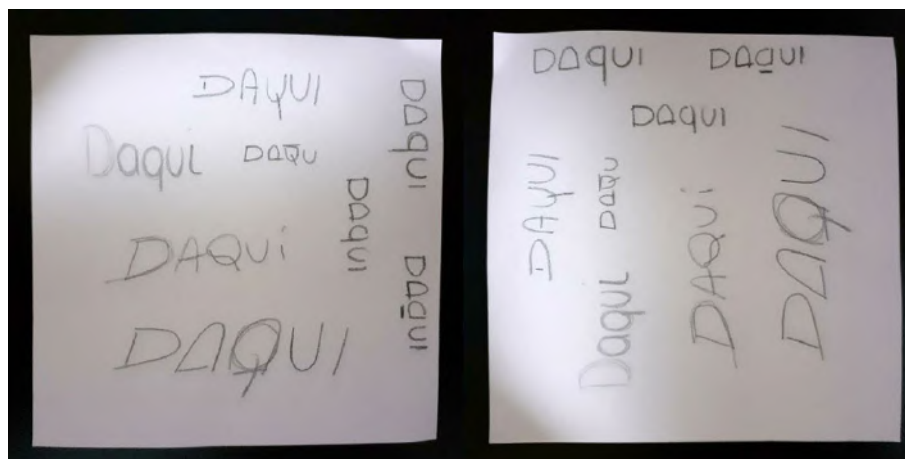 DAYUI
Daqui
DAQU
DAQUi
DAQUI
DAqUI
DAqUI
DAQUI
DAqUI
DAQUI
DAqUI
DAYUI
DAQU
Daqui
DAQUi
DAQUI